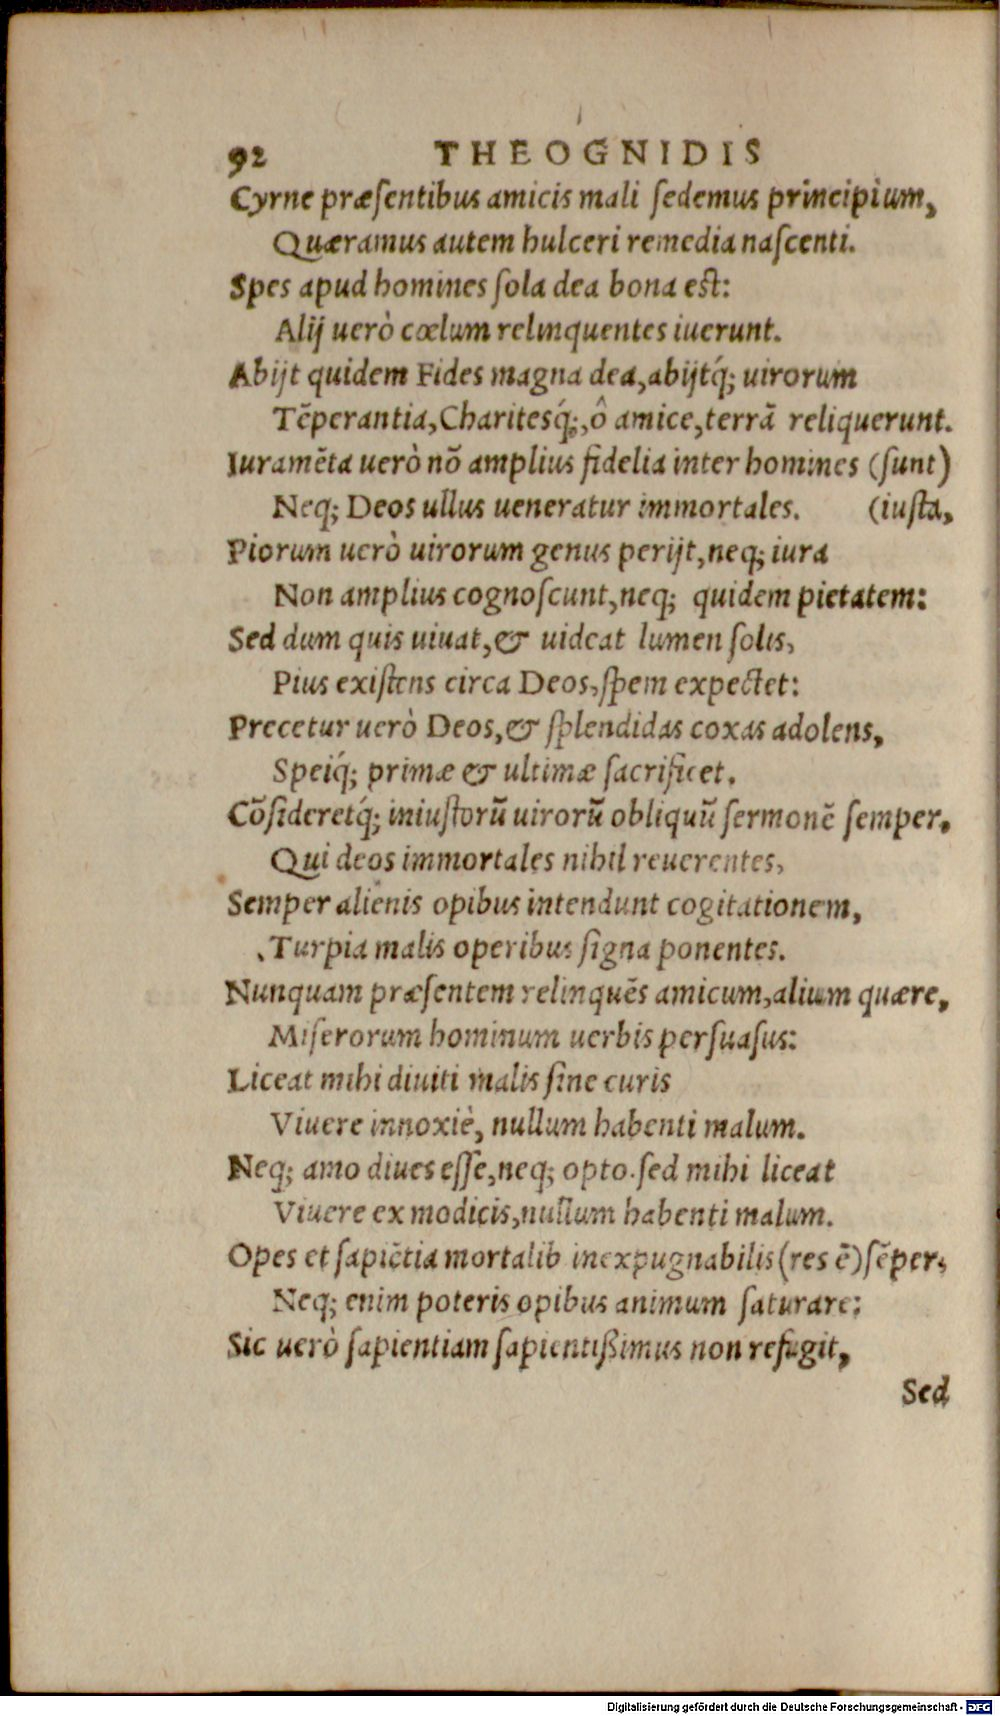 92 THEOGNIDIS
Cyrne præſentibus amicis mali ſedemus principium,
Quæramus autem hulceri remedia naſcenti.
Spes apud homines ſola dea bona est:
Alij uerò cœlum relinquentes iuerunt.
Abijt quidem Fides magna dea, abijtq́; uirorum
Tēperantia, Charitesq́;, ô amice, terrā reliquerunt.
Iuramēta uerò nō amplius fidelia inter homines (ſunt)
Neq; Deos ullus ueneratur immortales. (iusta,
Piorum uerò uirorum genus perijt, neq; iura
Non amplius cognoſcunt, neq; quidem pietatem:
Sed dum quis uiuat, & uideat lumen ſolis,
Pius existens circa Deos, ſpem expectet:
Precetur uerò Deos, & ſplendidas coxas adolens,
Speiq́; primæ & ultimæ ſacrificet.
Cōſideretq́; iniustorū uirorū obliquū ſermonē ſemper,
Qui deos immortales nihil reuerentes,
Semper alienis opibus intendunt cogitationem,
Turpia malis operibus ſigna ponentes.
Nunquam præſentem relinquēs amicum, alium quære,
Miſerorum hominum uerbis perſuaſus:
Liceat mihi diuiti malis ſine curis
Viuere innoxiè, nullum habenti malum.
Neq; amo diues eſſe, neq; opto. ſed mihi liceat
Viuere ex modicis, nullum habenti malum.
Opes et ſapiētia mortalib inexpugnabilis (res ē) ſēper,
Neq; enim poteris opibus animum ſaturare:
Sic uerò ſapientiam ſapientißimus non refugit,
Sed
Digitalisierung gefördert durch die Deutsche Forschungsgemeinschaft - DFG